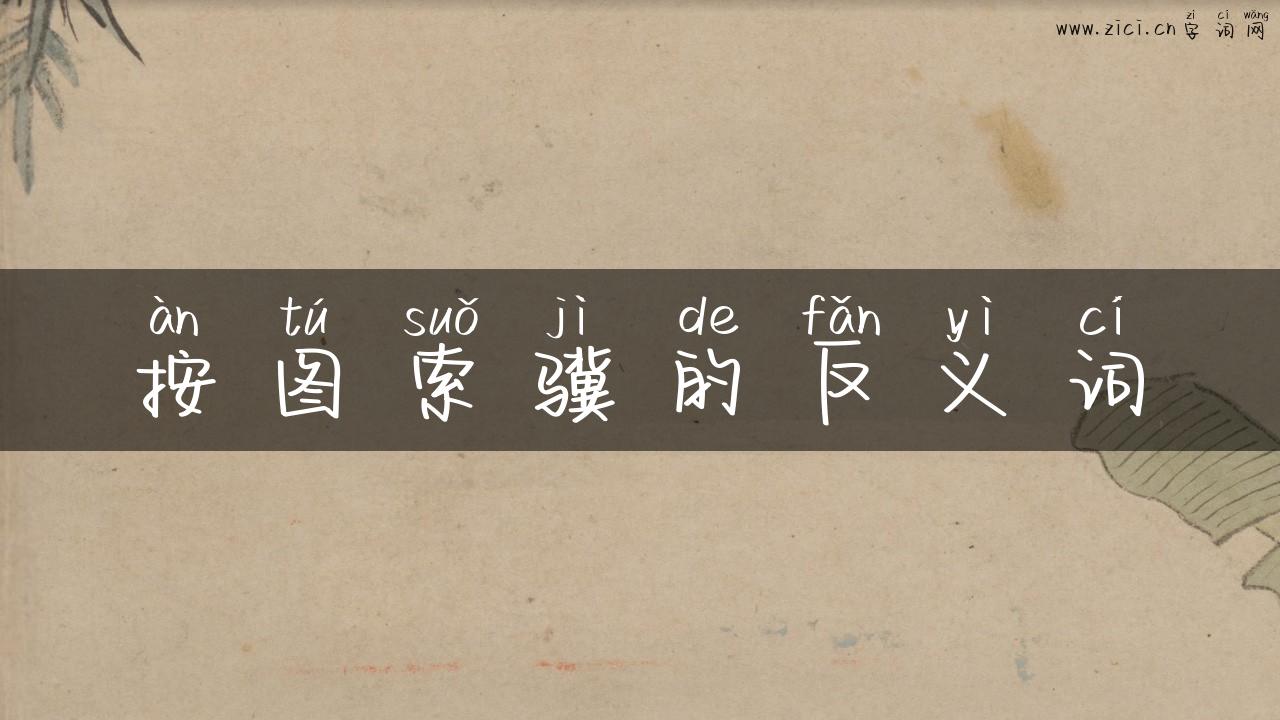 zì cí wǎng
www.zici.cn 字词网
àn tú suǒ jì de fǎn yì cí
按图索骥的反义词